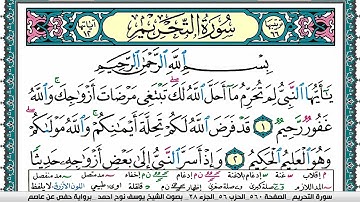 سُورَةُ التَّحْرِيمِ
بِسْمِ اللَّهِ الرَّحْمَٰنِ الرَّحِيمِ
يَا أَيُّهَا النَّبِيُّ لِمَ تُحَرِّمُ مَا أَحَلَّ اللَّهُ لَكَ تَبْتَغِي مَرْضَاتَ أَزْوَاجِكَ وَاللَّهُ
غَفُورٌ رَحِيمٌ ١ قَدْ فَرَضَ اللَّهُ لَكُمْ تَحِلَّةَ أَيْمَانِكُمْ وَاللَّهُ مَوْلَاكُمْ
وَهُوَ الْعَلِيمُ الْحَكِيمُ ٢ وَإِذْ أَسَرَّ النَّبِيُّ إِلَى بَعْضِ أَزْوَاجِهِ حَدِيثًا
سورة التحريم الصفحة ٥٦٠ الحزب ٥٦ الجزء ٢٨ بصوت الشيخ يوسف نوح احمد برواية حفص عن عاصم